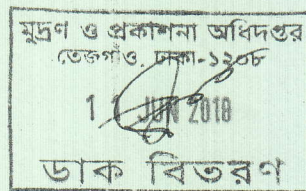 মুদ্রণ ও প্রকাশনা অধিদপ্তর
তেজগাঁও, ঢাকা-১২০৮
JUN 2018
ডাক বিতরণ